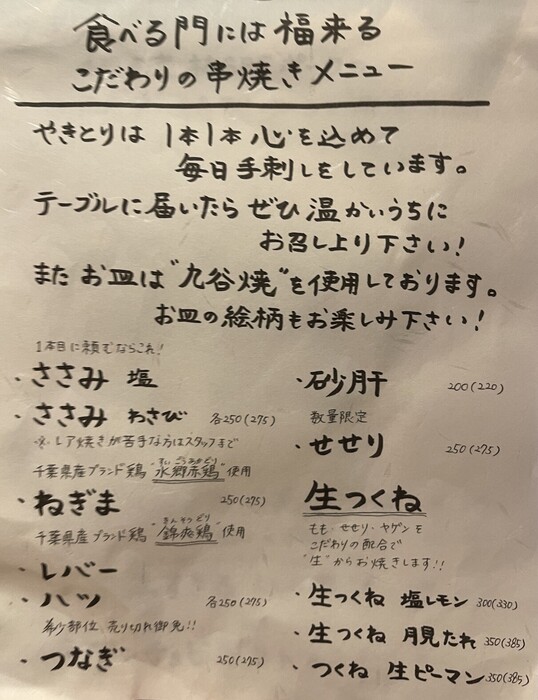 食べる門には福来る
こだわりの串焼きメニュー
やきとりは 1本1本 心を込めて
毎日手刺しをしています。
テーブルに届いたら ぜひ 温かいうちに
お召し上り下さい!
また お皿は"九谷焼"を使用しております。
お皿の絵柄もお楽しみ下さい!
1本目に頼むならこれ!
・ささみ 塩
・ささみ わさび 各250(275)
※レア焼きが苦手な方はスタッフまで
千葉県産ブランド鶏 "水郷赤鶏" 使用
すいごうあかどり
・ねぎま 250(275)
千葉県産ブランド鶏 "錦爽鶏" 使用
きんそうどり
・レバー
・ハツ 各250(275)
希少部位 売り切れ御免!!
・つなぎ 250(275)
・砂肝 200(220)
数量限定
・せせり 250(275)
生つくね
もも・せせり・ヤゲンを
こだわりの配合で
"生"からお焼きします!!
・生つくね 塩レモン 300(330)
・生つくね 月見たれ 350(385)
・つくね 生ピーマン 350(385)